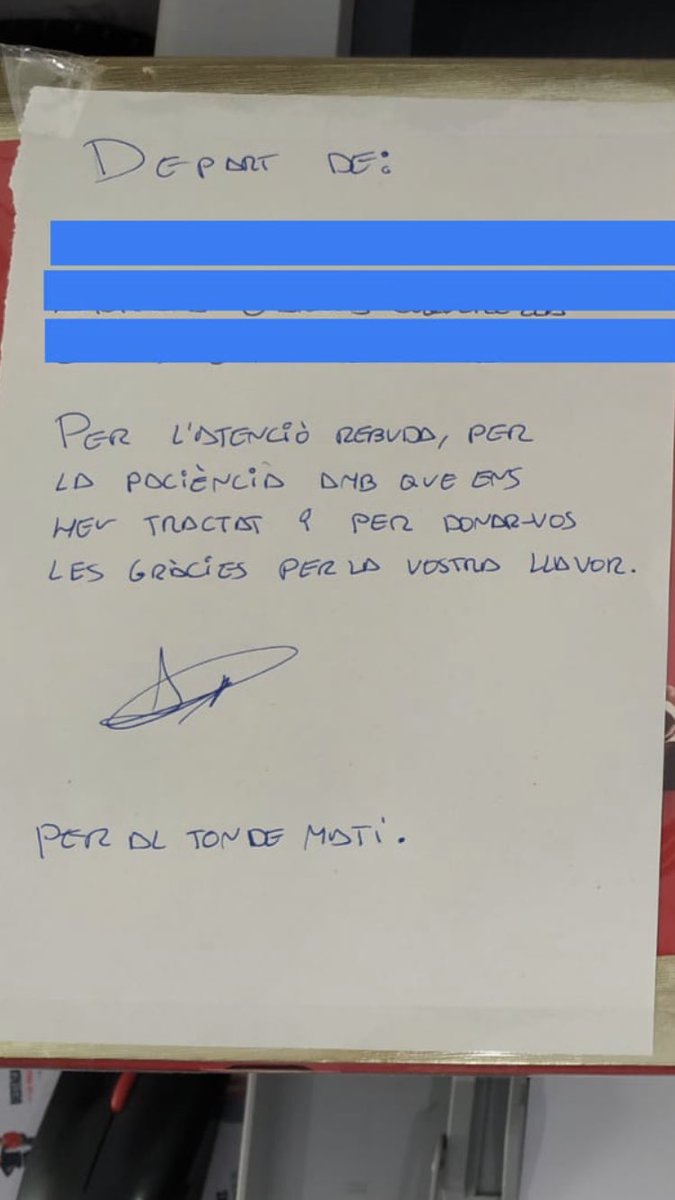 DEPART DE:
PER L'ATENCIÒ REBUDA, PER
LA PACIÈNCIA AMB QUE ENS
HEU TRACTAT I PER DONAR-VOS
LES GRÀCIES PER LA VOSTRA LLAVOR.
PER AL TONDE MATÍ.